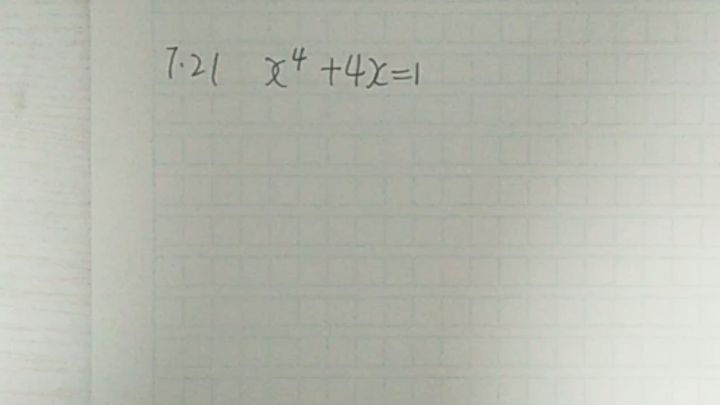 7.21 x⁴+4x=1